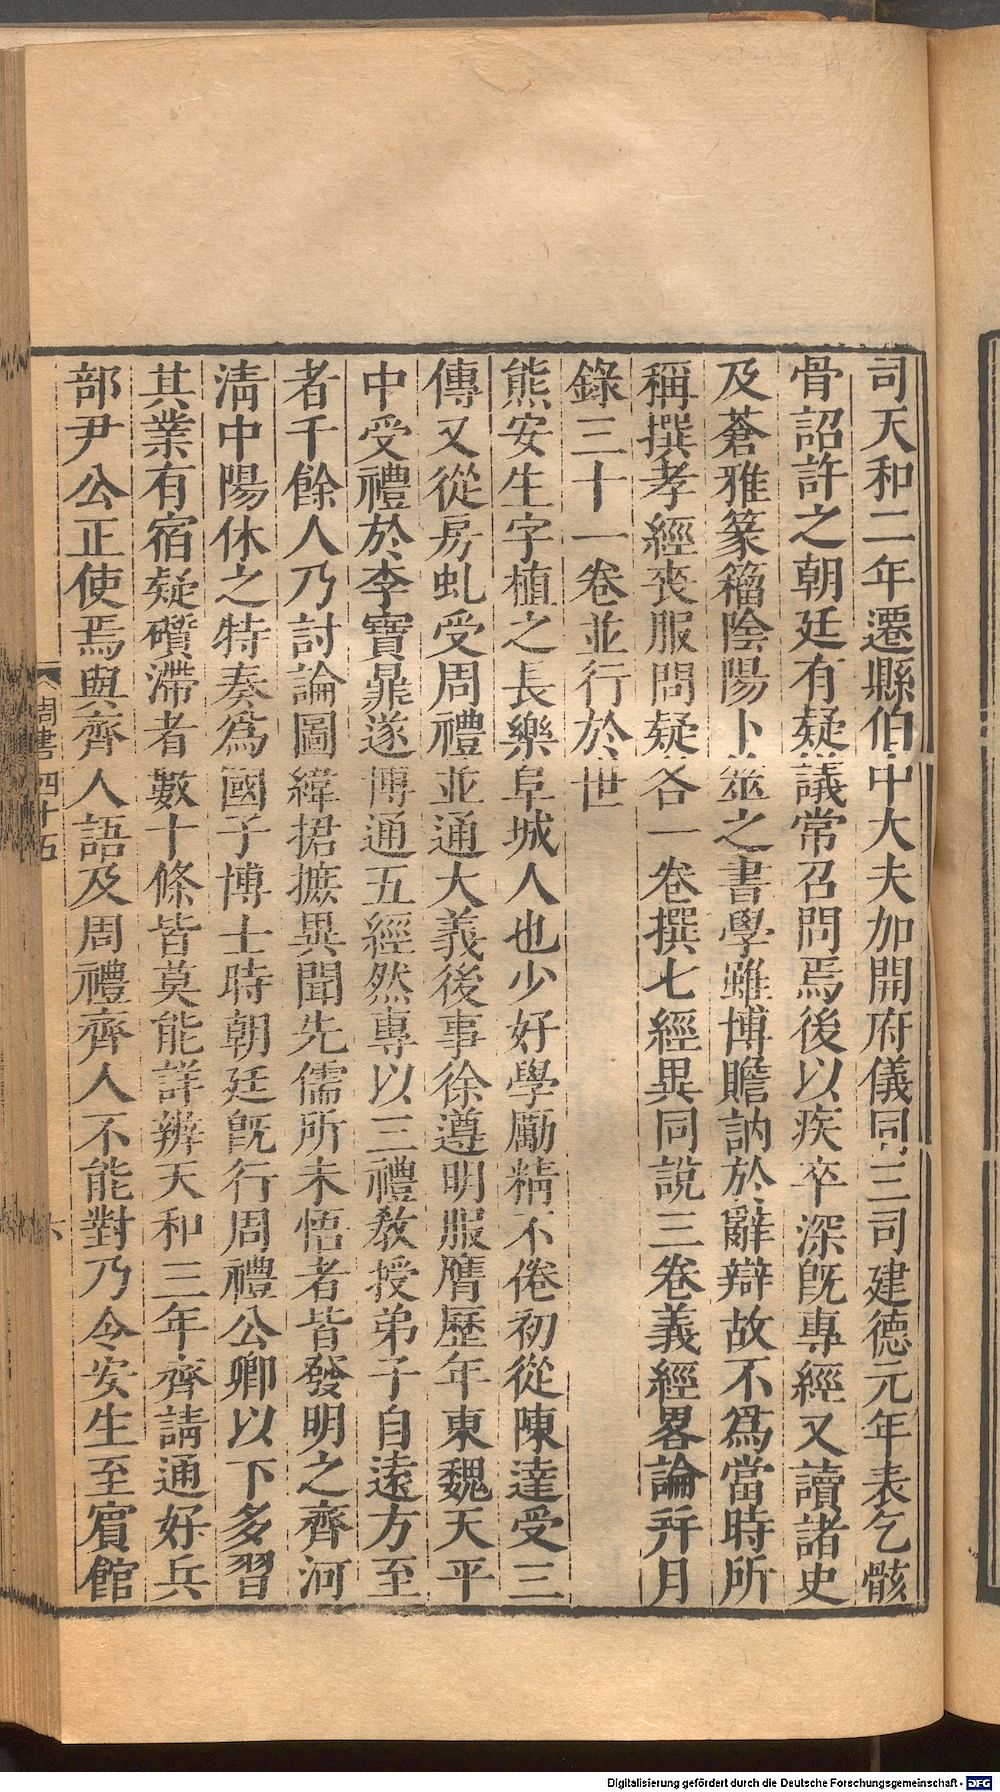 司天和二年遷縣伯中大夫加開府儀同三司建德元年表乞骸
骨詔許之朝廷有疑議常召問焉後以疾卒深既專經又讀諸史
及蒼雅篆籀陰陽卜筮之書學雖博贍訥於辭辯故不爲當時所
稱撰孝經喪服問疑各一卷撰七經異同說三卷義經畧論幷月
錄三十一卷並行於世
熊安生字植之長樂阜城人也少好學勵精不倦初從陳達受三
傳又從房虬受周禮並通大義後事徐遵明服膺歷年東魏天平
中受禮於李寶鼎遂博通五經然專以三禮教授弟子自遠方至
者千餘人乃討論圖緯捃摭異聞先儒所未悟者皆發明之齊河
清中陽休之特奏爲國子博士時朝廷既行周禮公卿以下多習
其業有宿疑礩滯者數十條皆莫能詳辨天和三年齊請通好兵
部尹公正使焉與齊人語及周禮齊人不能對乃令安生至賓館
周書四十五
六
Digitalisierung gefördert durch die Deutsche Forschungsgemeinschaft - DFG